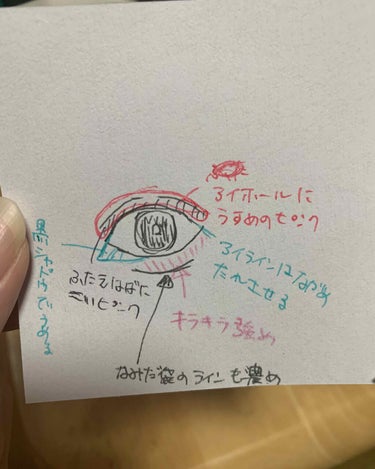 アイホールに
うすめのピンク
アイラインはながめ
たれさせる
ふたえはばに
こいピンク
キラキラ強め
なみだ袋のラインも濃め